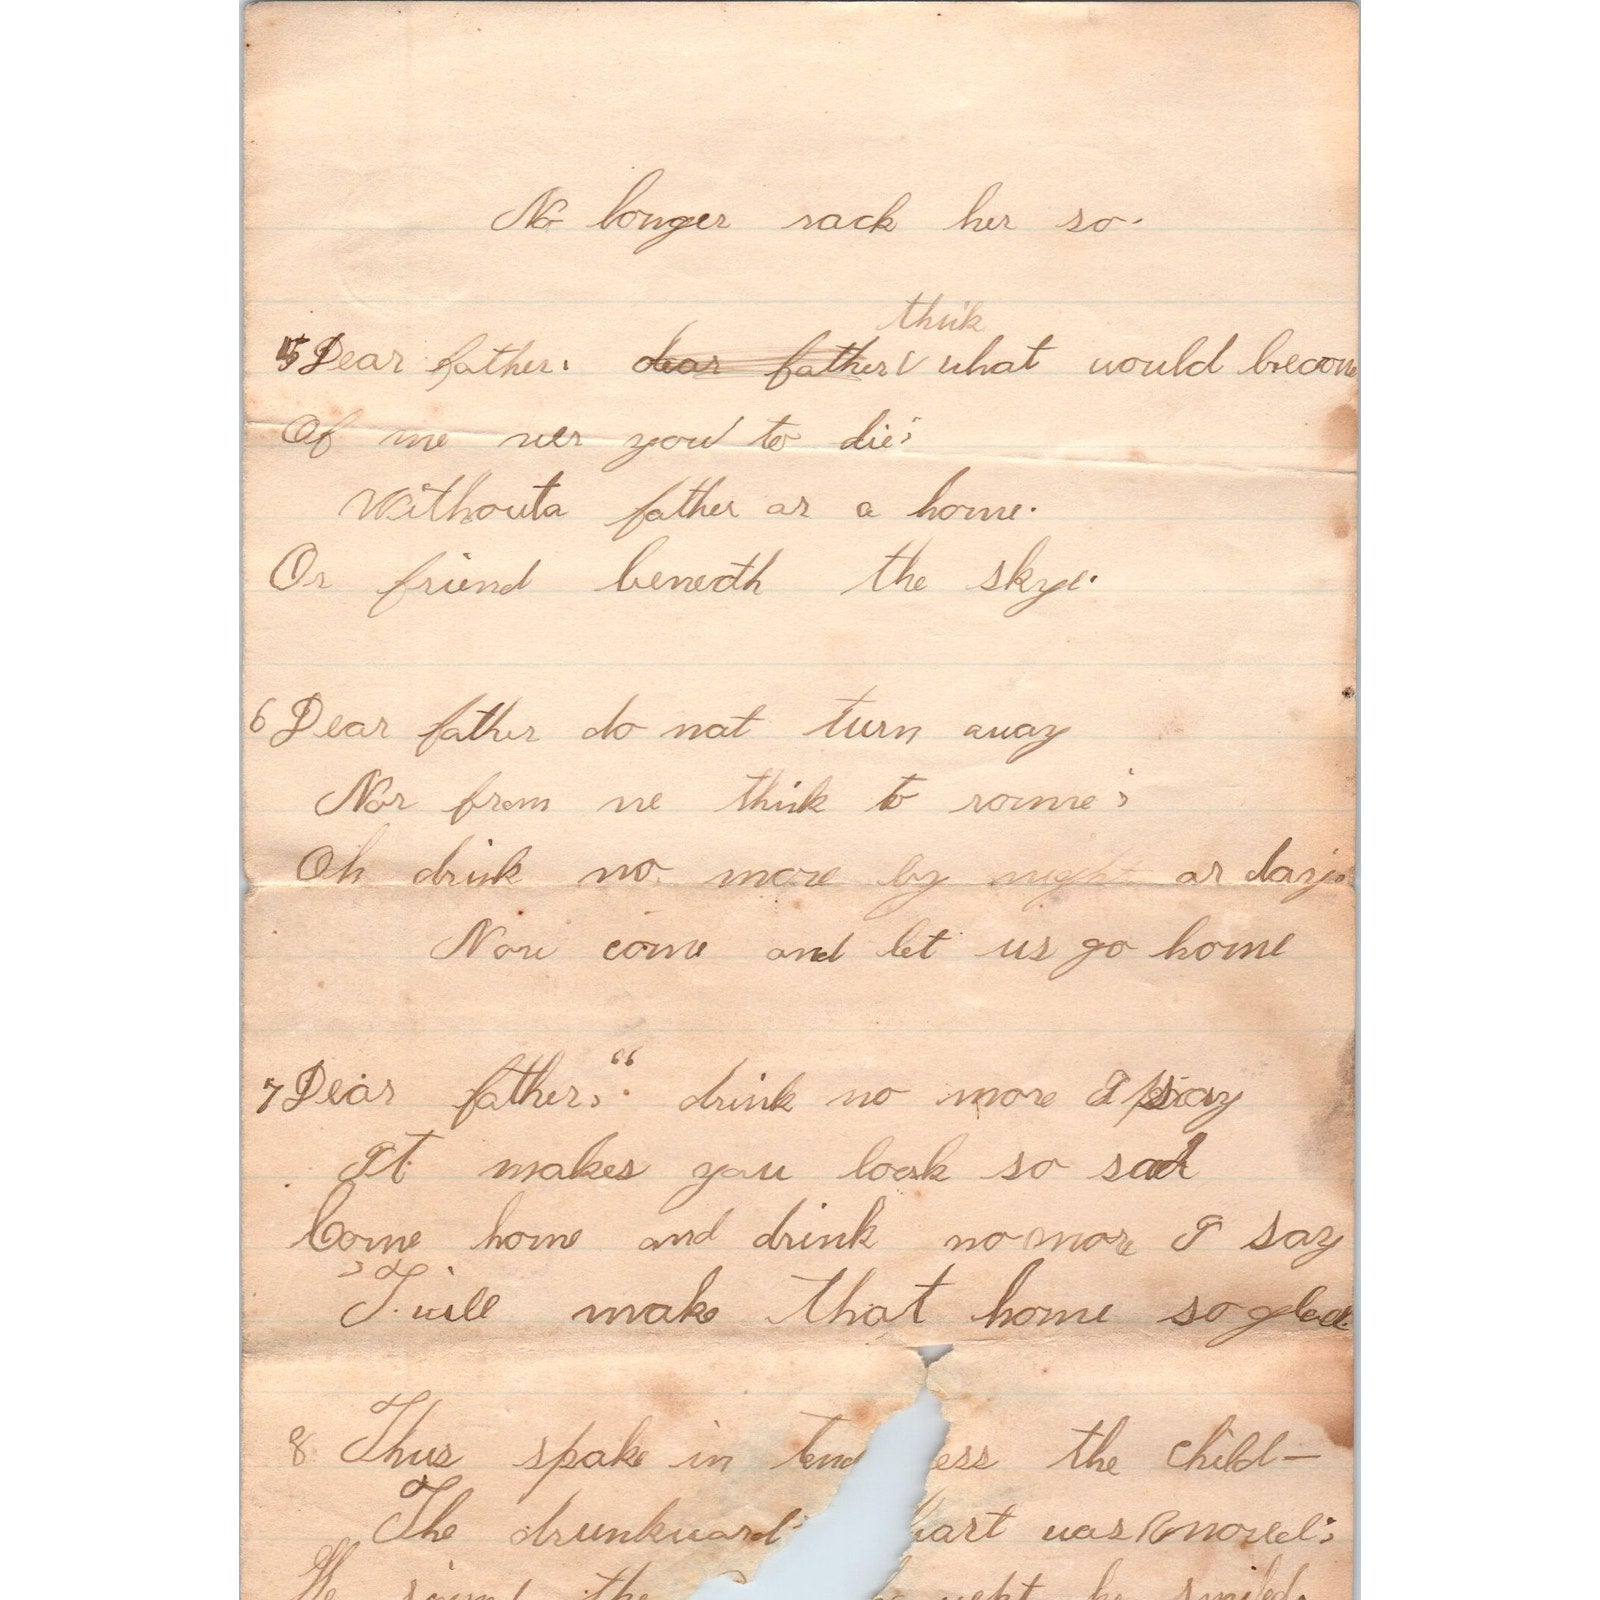 No longer rack her so.
think
5 Dear father. dear father what would become
Of me wer you to die;
Withouta father or a home.
Or friend beneath the skye.
6 Dear father do not turn away
Nor from me think to rome;
Oh drink no more by night or day.
Now come and let us go home
7 Dear father, " drink no more I pray
It makes you look so sad
Come home and drink no more I say
T'will make that home so glad
8 Thus spake in tend ess the child—
The drunkard's hart was moved;
He signed the wept he smiled.